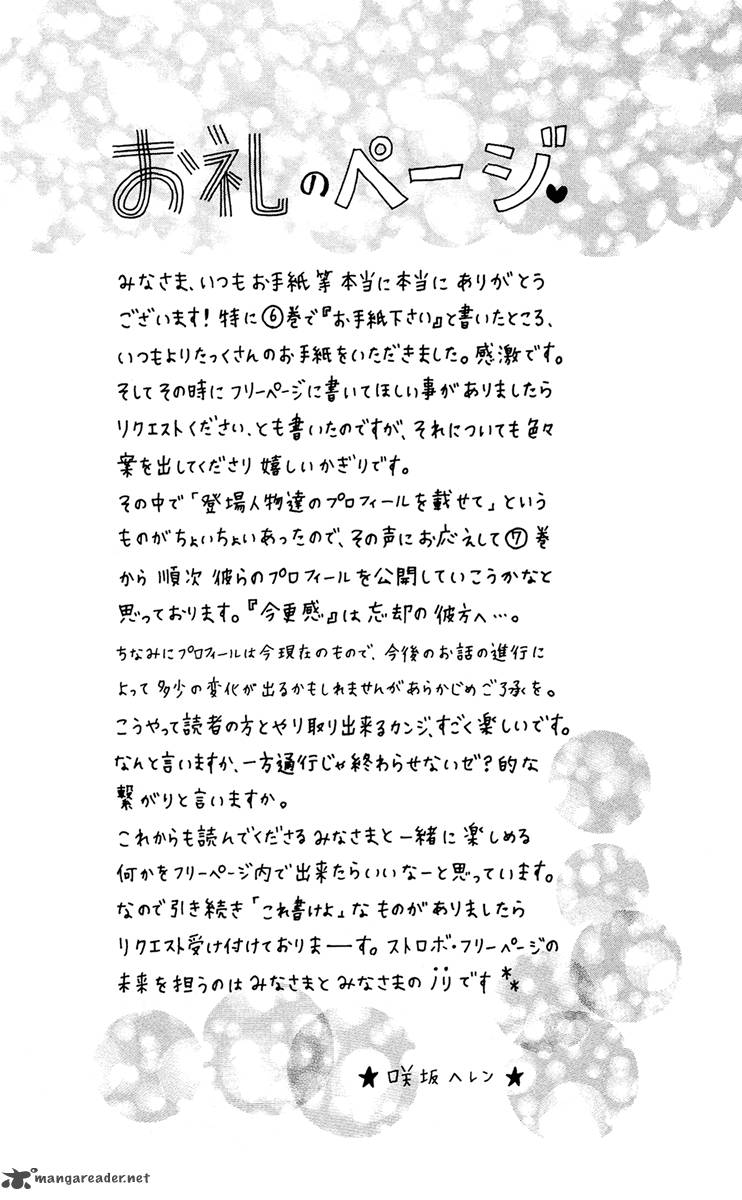 お礼のページ♥
みなさま、いつもお手紙等本当に本当にありがとう
ございます!特に⑥巻で『お手紙下さい』と書いたところ、
いつもよりたっくさんのお手紙をいただきました。感激です。
そしてその時にフリーページに書いてほしい事がありましたら
リクエストください、とも書いたのですが、それについても色々
案を出してくださり嬉しいかぎりです。
その中で「登場人物達のプロフィールを載せて」という
ものがちょいちょいあったので、その声にお応えして⑦巻
から順次彼らのプロフィールを公開していこうかなと
思っております。『今更感』は忘却の彼方へ…。
ちなみにプロフィールは今現在のもので、今後のお話の進行に
よって多少の変化が出るかもしれませんがあらかじめご了承を。
こうやって読者の方とやり取り出来るカンジ、すごく楽しいです。
なんと言いますか、一方通行じゃ終わらせないゼ?的な
繋がりと言いますか。
これからも読んでくださるみなさまと一緒に楽しめる
何かをフリーページ内で出来たらいいなーと思っています。
なので引き続き「これ書けよ」なものがありましたら
リクエスト受け付けておりまーす。ストロボ・フリーページの
未来を担うのはみなさまとみなさまのです
★咲坂ヘレン★
mangareader.net